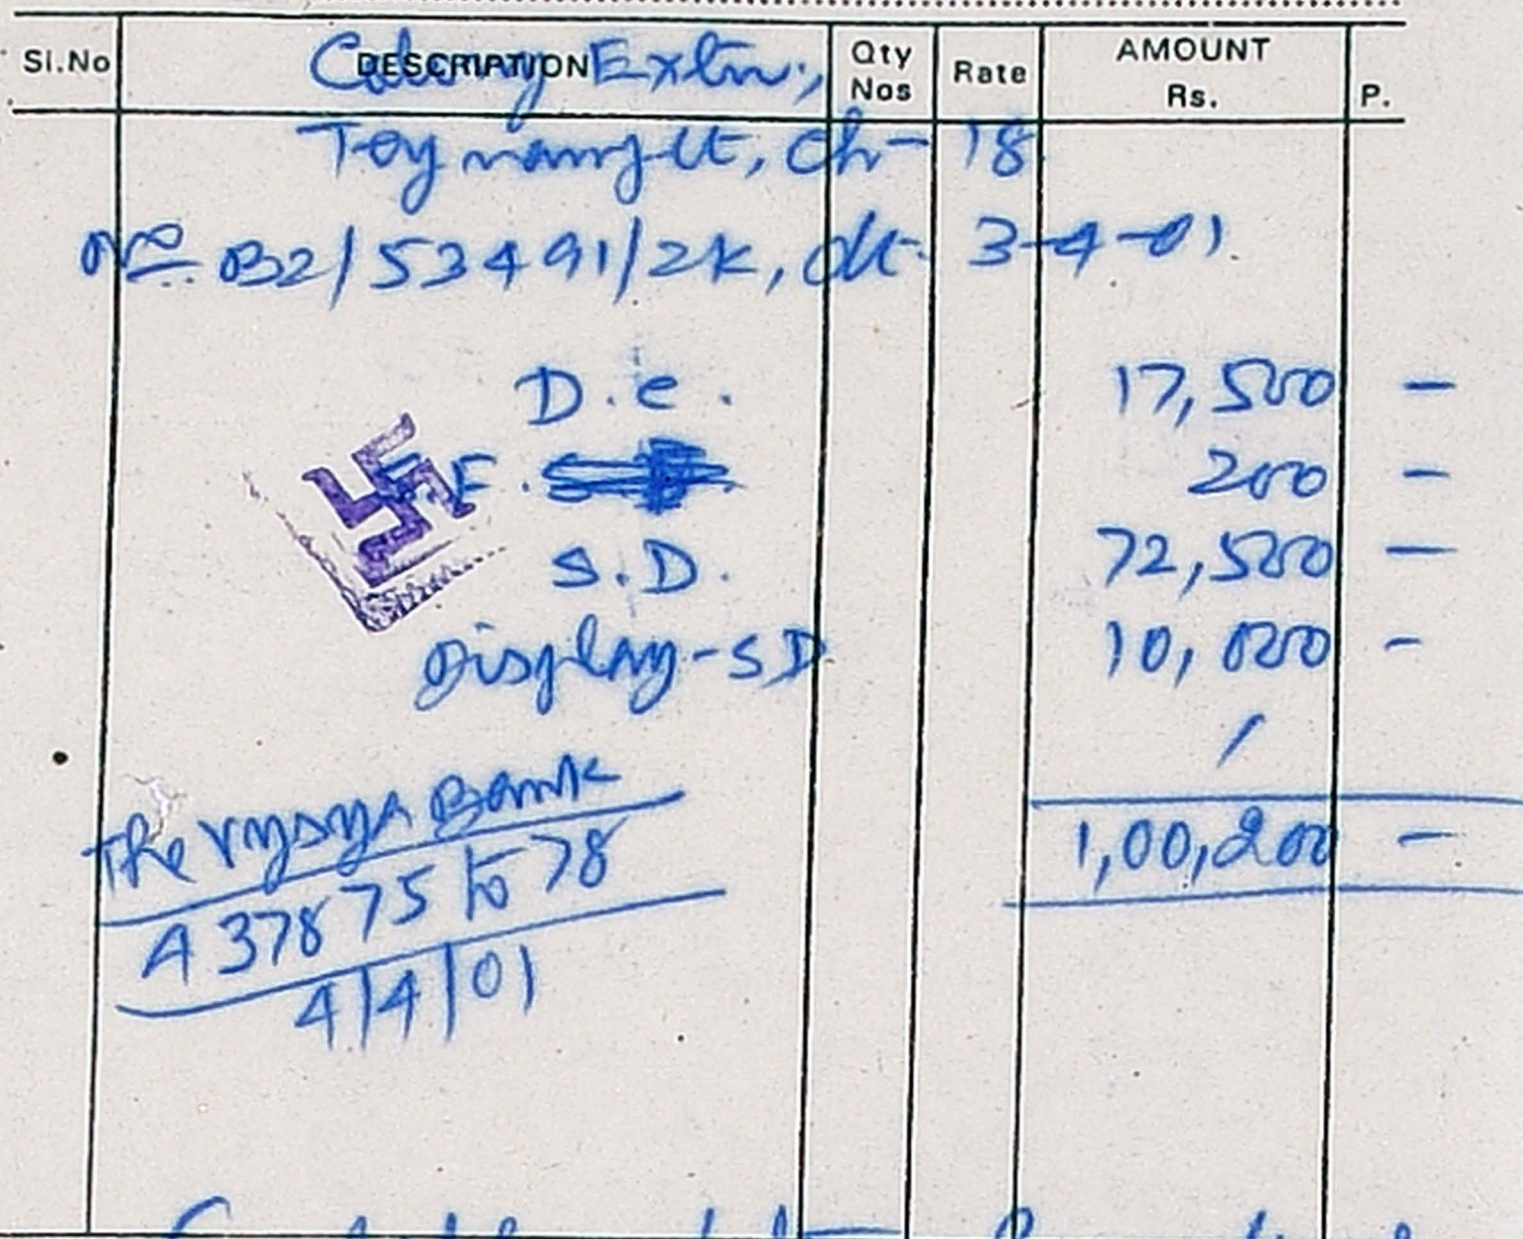 Sl.No DESCRIPTION Qty Nos Rate AMOUNT Rs. P.
Colony Extn.,
Teynampet, Ch- 18
No B2/53491/2K, dt. 3-4-01
D.C. 17,500 -
S.F. 200 -
S.D. 72,500 -
Display-S.D 10,000 -
The Vysya Bank
1,00,200 -
437875 to 78
4/4/01